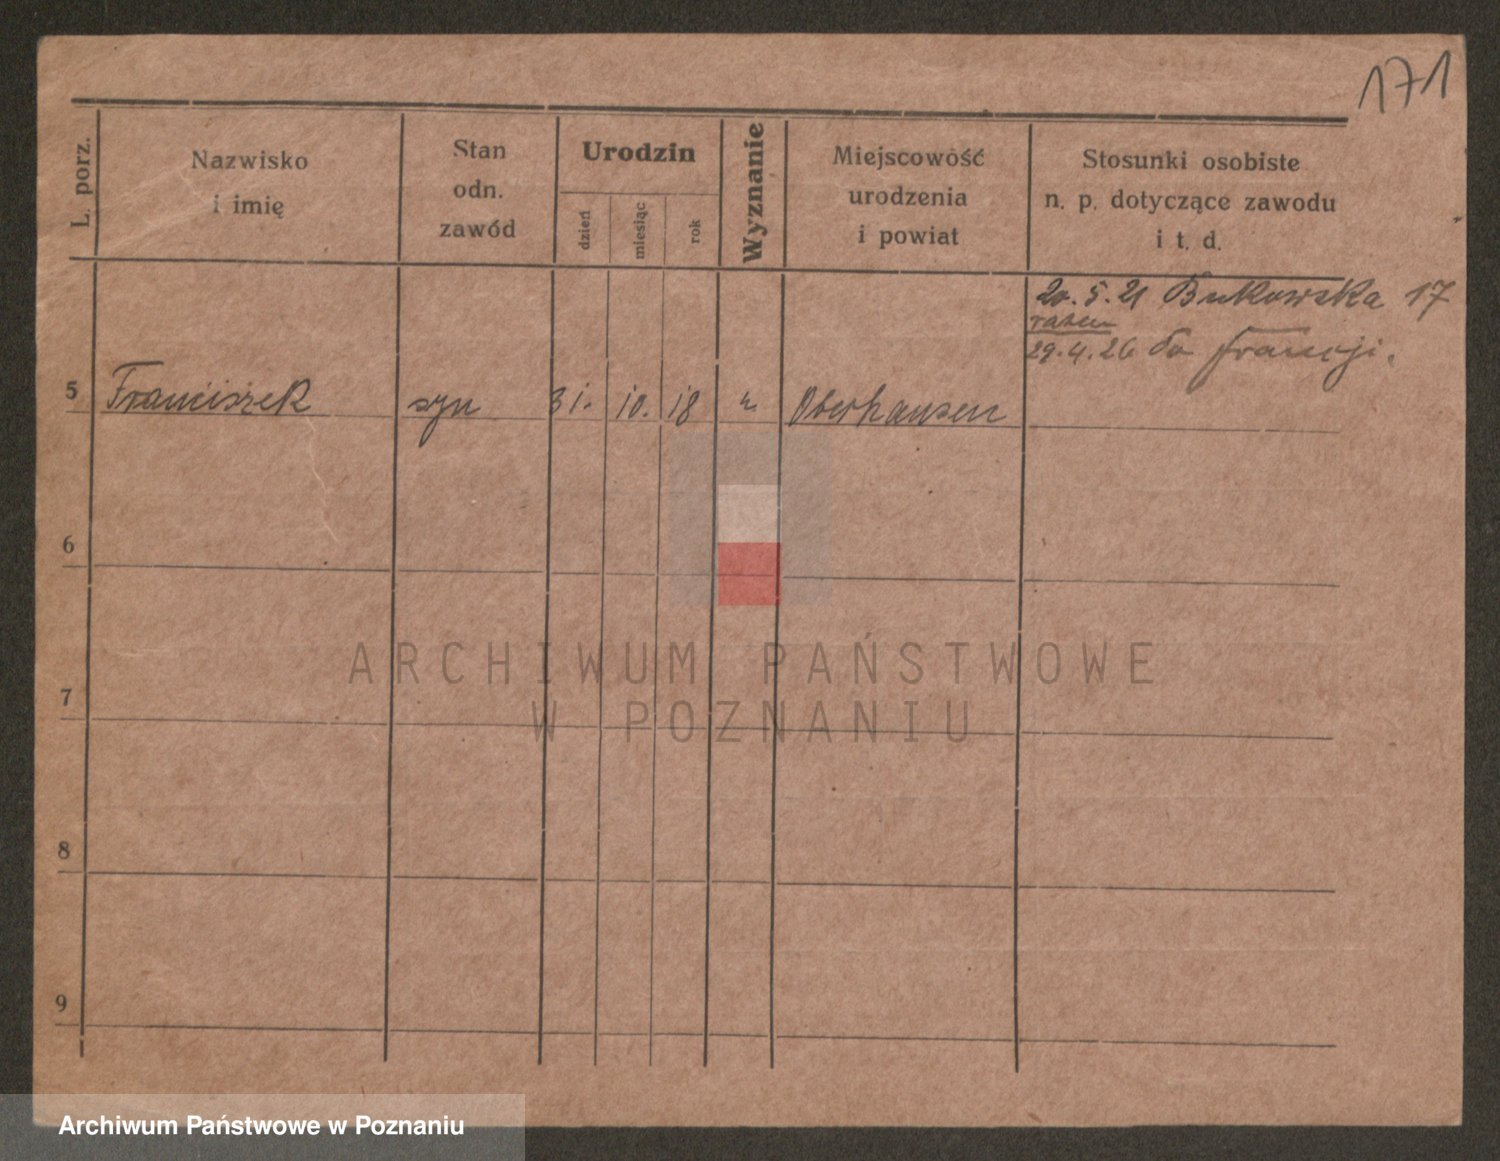 171
L. porz.
Nazwisko
i imię
Stan
odn.
zawód
Urodzin
dzień
miesiąc
rok
Wyznanie
Miejscowość
urodzenia
i powiat
Stosunki osobiste
n. p. dotyczące zawodu
i t. d.
20. 5. 21 Bukowska 17
razem
29. 4. 26 do Francji.
5 Franciszek syn 31. 10. 18 Oberhausen
6
7
8
9
ARCHIWUM PAŃSTWOWE
W POZNANIU
Archiwum Państwowe w Poznaniu